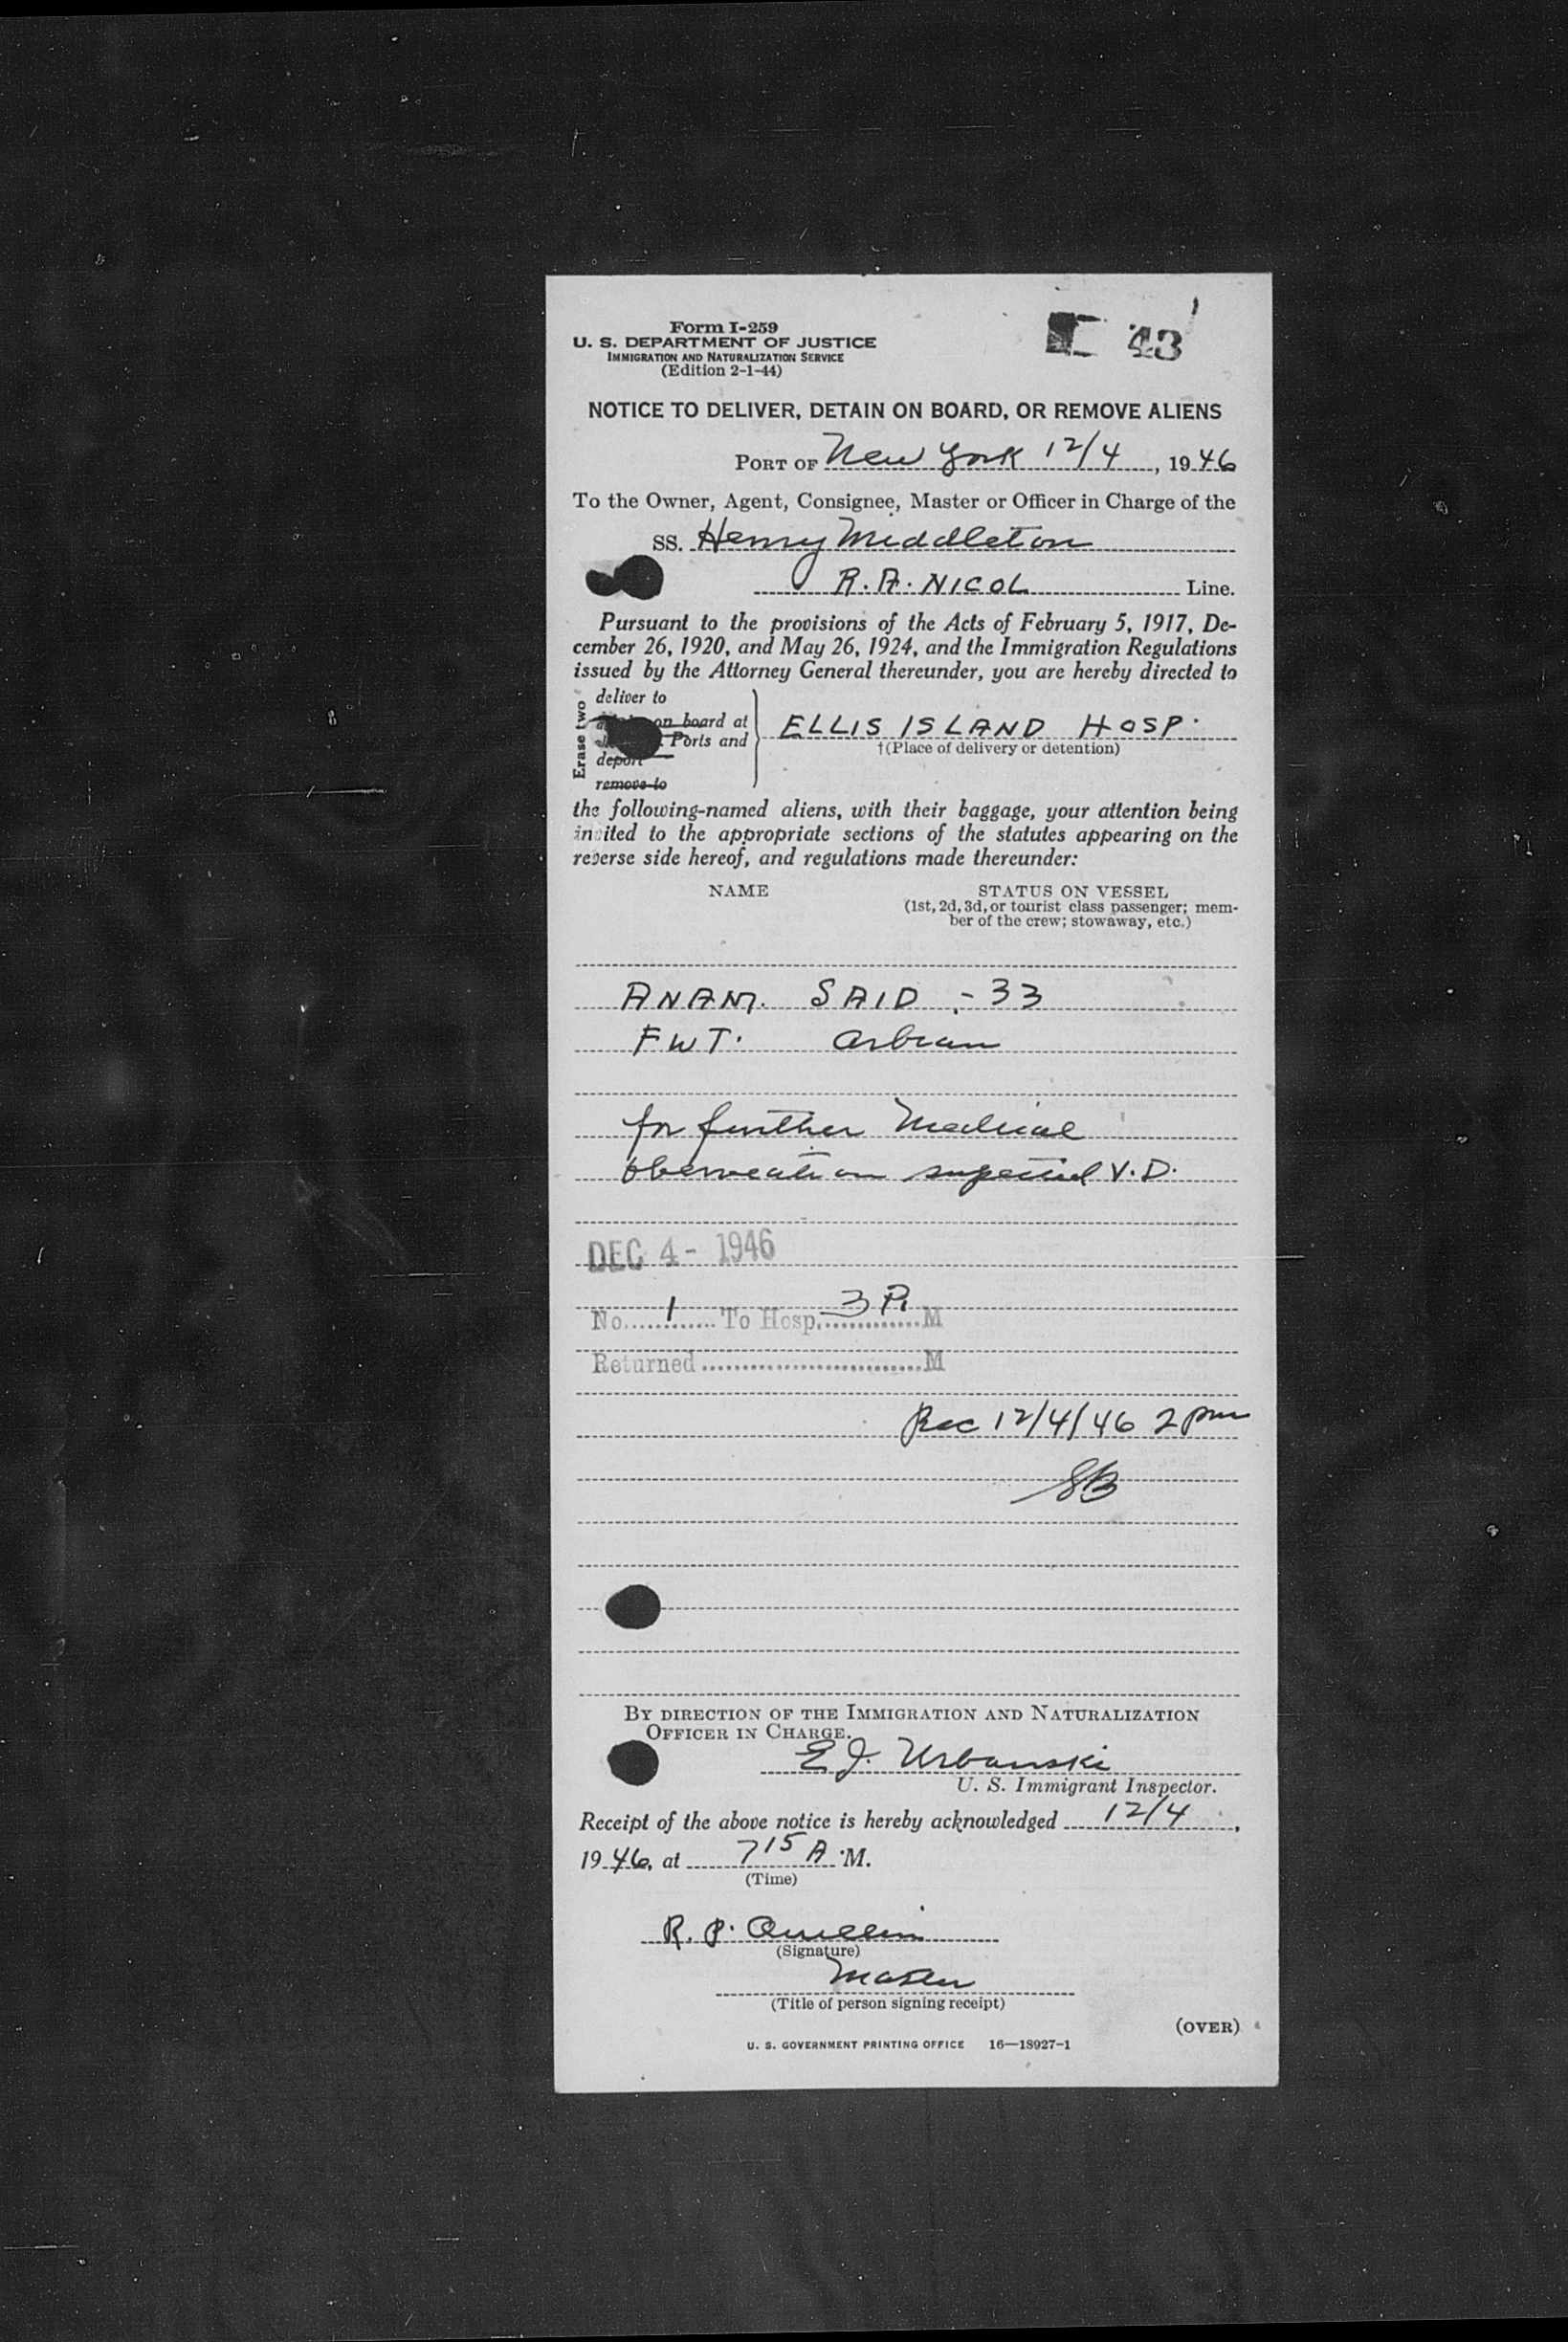 Form I-259
U. S. DEPARTMENT OF JUSTICE
IMMIGRATION AND NATURALIZATION SERVICE
(Edition 2-1-44)
43
NOTICE TO DELIVER, DETAIN ON BOARD, OR REMOVE ALIENS
PORT OF New York 12/4, 1946
To the Owner, Agent, Consignee, Master or Officer in Charge of the
SS. Henry Middleton
R. A. NICOL Line.
Pursuant to the provisions of the Acts of February 5, 1917, De-
cember 26, 1920, and May 26, 1924, and the Immigration Regulations
issued by the Attorney General thereunder, you are hereby directed to
Erase two
deliver to
on board at
Ports and
deport
remove to
ELLIS ISLAND HOSP.
†(Place of delivery or detention)
the following-named aliens, with their baggage, your attention being
invited to the appropriate sections of the statutes appearing on the
reverse side hereof, and regulations made thereunder:
NAME
STATUS ON VESSEL
(1st, 2d, 3d, or tourist class passenger; mem-
ber of the crew; stowaway, etc.)
ANAM. SAID - 33
FWT. Arbian
for further Medical
Observation suspected V.D.
DEC 4 - 1946
No. 1 To Hosp. 3 P. M
Returned M
Rec 12/4/46 2 pm
SB
BY DIRECTION OF THE IMMIGRATION AND NATURALIZATION
OFFICER IN CHARGE.
E J. Urbanski
U. S. Immigrant Inspector.
Receipt of the above notice is hereby acknowledged 12/4,
1946, at 715 A M.
(Time)
R. P.
(Signature)
Master
(Title of person signing receipt)
(OVER)
U. S. GOVERNMENT PRINTING OFFICE 16—18927-1